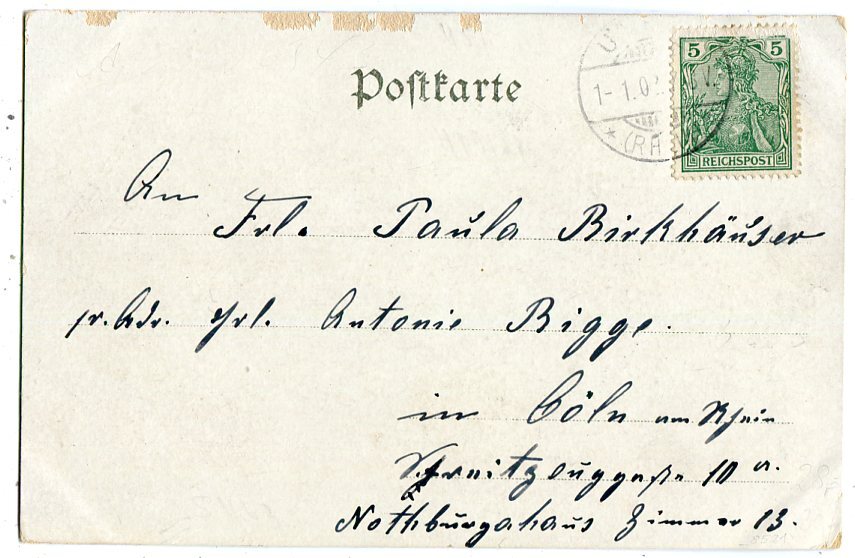 Postkarte
1-1.0
5 5
REICHSPOST
An
Frl. Paula Birkhäuser
pr. Adr. Frl. Antonie Bigge.
in Cöln am Rhein
10 a.
Nothburgahaus Zimmer 13.